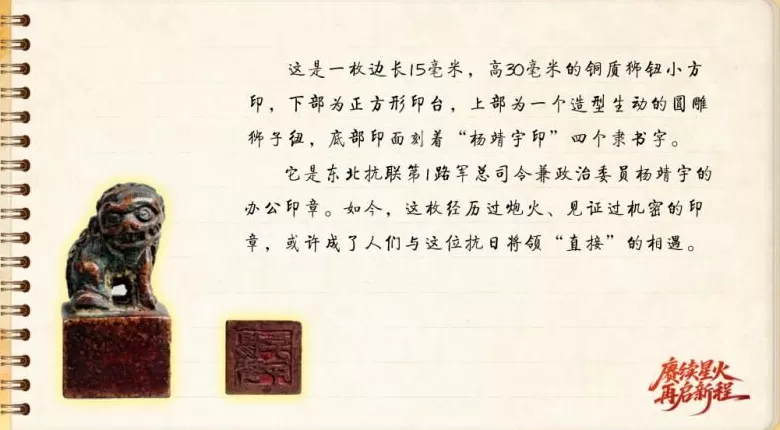 这是一枚边长15毫米，高30毫米的铜质狮钮小方
印，下部为正方形印台，上部为一个造型生动的圆雕
狮子纽，底部印面刻着“杨靖宇印”四个隶书字。
它是东北抗联第1路军总司令兼政治委员杨靖宇的
办公印章。如今，这枚经历过炮火、见证过机密的印
章，或许成了人们与这位抗日将领“直接”的相遇。
赓续星火
再启新程